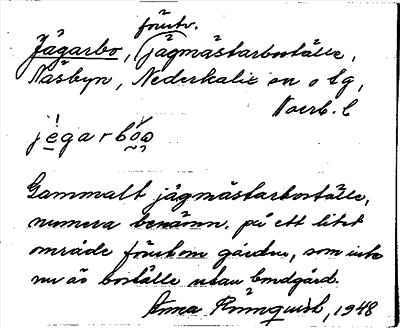 förutv.
Jägarbo, (jägmästarboställe,
Näsbyn, Nederkalix sn o tg,
Norrb. l
jègarbòo
Gammalt jägmästarboställe,
numera benämn. på ett litet
område förutom gården, som icke
nu är boställe utan bondgård.
Anna Rönnquist, 1948